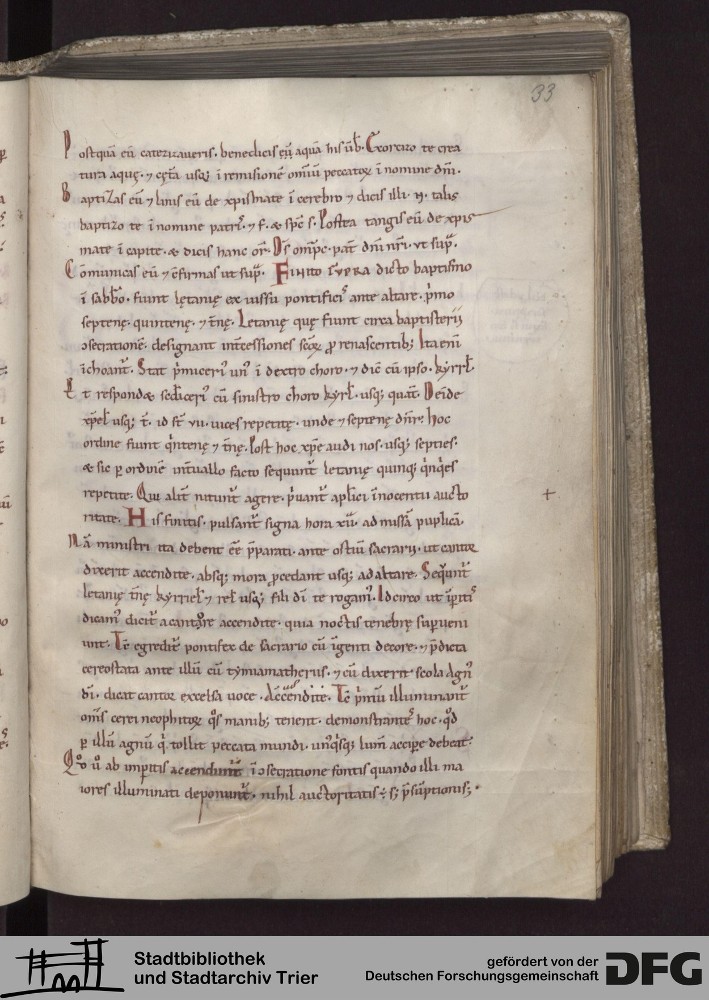 33
Postquā eū catezizaveris. benedicis eū aquā his ūb. Exorcizo te crea
tura aquę. ⁊ cęt̄a usq; ī remisionē om̄iū peccatoꝝ ī nomine dn̄i.
Baptizas eū ⁊ linis eū de xpismate ī cerebro ⁊ dicis illi. N. talis
baptizo te ī nomine patrıˢ ⁊ f. & sp̄c s. Postea tangis eū de xpis
mate ī capite. & dicis hanc or̄. Ds̄ omp̄c. pat̄ dn̄i nr̄i. ut sup̄.
Cōmunicas eū ⁊ cfirmas ut sup̄. Finito supra dicto baptismo
ī sabb̄o. fiunt lętanię ex iussu pontificıˢ ante altare. p̄mo
septenę. quintenę. ⁊ t̄nę. Letanię quę fiunt circa baptisterii
osecrationē. designant int̄cessiones sc̄oꝝ ꝓ renascentib; Ita eni
īchoant᷑. Stat p̄micerıˀ unˀ ī dextro choro. ⁊ dic̄ cū ipso. kyrrł.
Et respond& sedicerıˀ cū sinistro choro kyrł. usq; quat᷑. Deīde
xp̄eł usq; t̄. id st̄ vii. uices repetitę. unde ⁊ septenę dn̄r. Hoc
ordine fiunt q̄ntenę ⁊ t̄nę. Post hoc xp̄e audi nos. usq; septies.
& sic ꝑ ordinē int̄uallo facto sequunt᷑ letanię quinq; q̄nq̄es
repetite. Qui alit̄ nitunt᷑ agere. p̄uant᷑ aplici īnocentii aucto
ritate. His finitis. pulsant᷑ signa hora xii. ad missā puplicā.
Nā ministri ita debent eē p̄parati. ante ostiū sacrarii. ut cantoꝛ
dixerit accendite. absq; mora ꝓcedant usq; ad altare. Sequnt᷑
letanię t̄nę kyrrieł ⁊ reł usq; fili dī te rogamˀ. Idcirco ut īperitıˢ
dicamˀ dicit᷑ a cantore accendite. quia noctis tenebrę superueni
unt. Tc̄ egredit᷑ pontifex de sacrario cū īgenti decore. ⁊ p̄dicta
cereostata ante illū cū tymiamatheriis. ⁊ cū dixerit scola Agnˀ
dī. dicat cantoꝛ excelsa uoce. Accendite. Tc̄ p̄mū illuminant᷑
om̄s cerei neophitoꝝ qͦs manib; tenent. demonstrantˢ hoc. qͦd
ꝑ illū agnū qͥ tollit peccata mundi. unˀqͥsq; lum̄ accipe debeat.
Qͦ ū ab imperitis accendunt᷑ ī osecratione fontis quando illi ma
iores illuminati deponunt᷑. nihil auctoritatis ÷ s; p̄sūptionis;
+
Stadtbibliothek
und Stadtarchiv Trier
gefördert von der
Deutschen Forschungsgemeinschaft
DFG